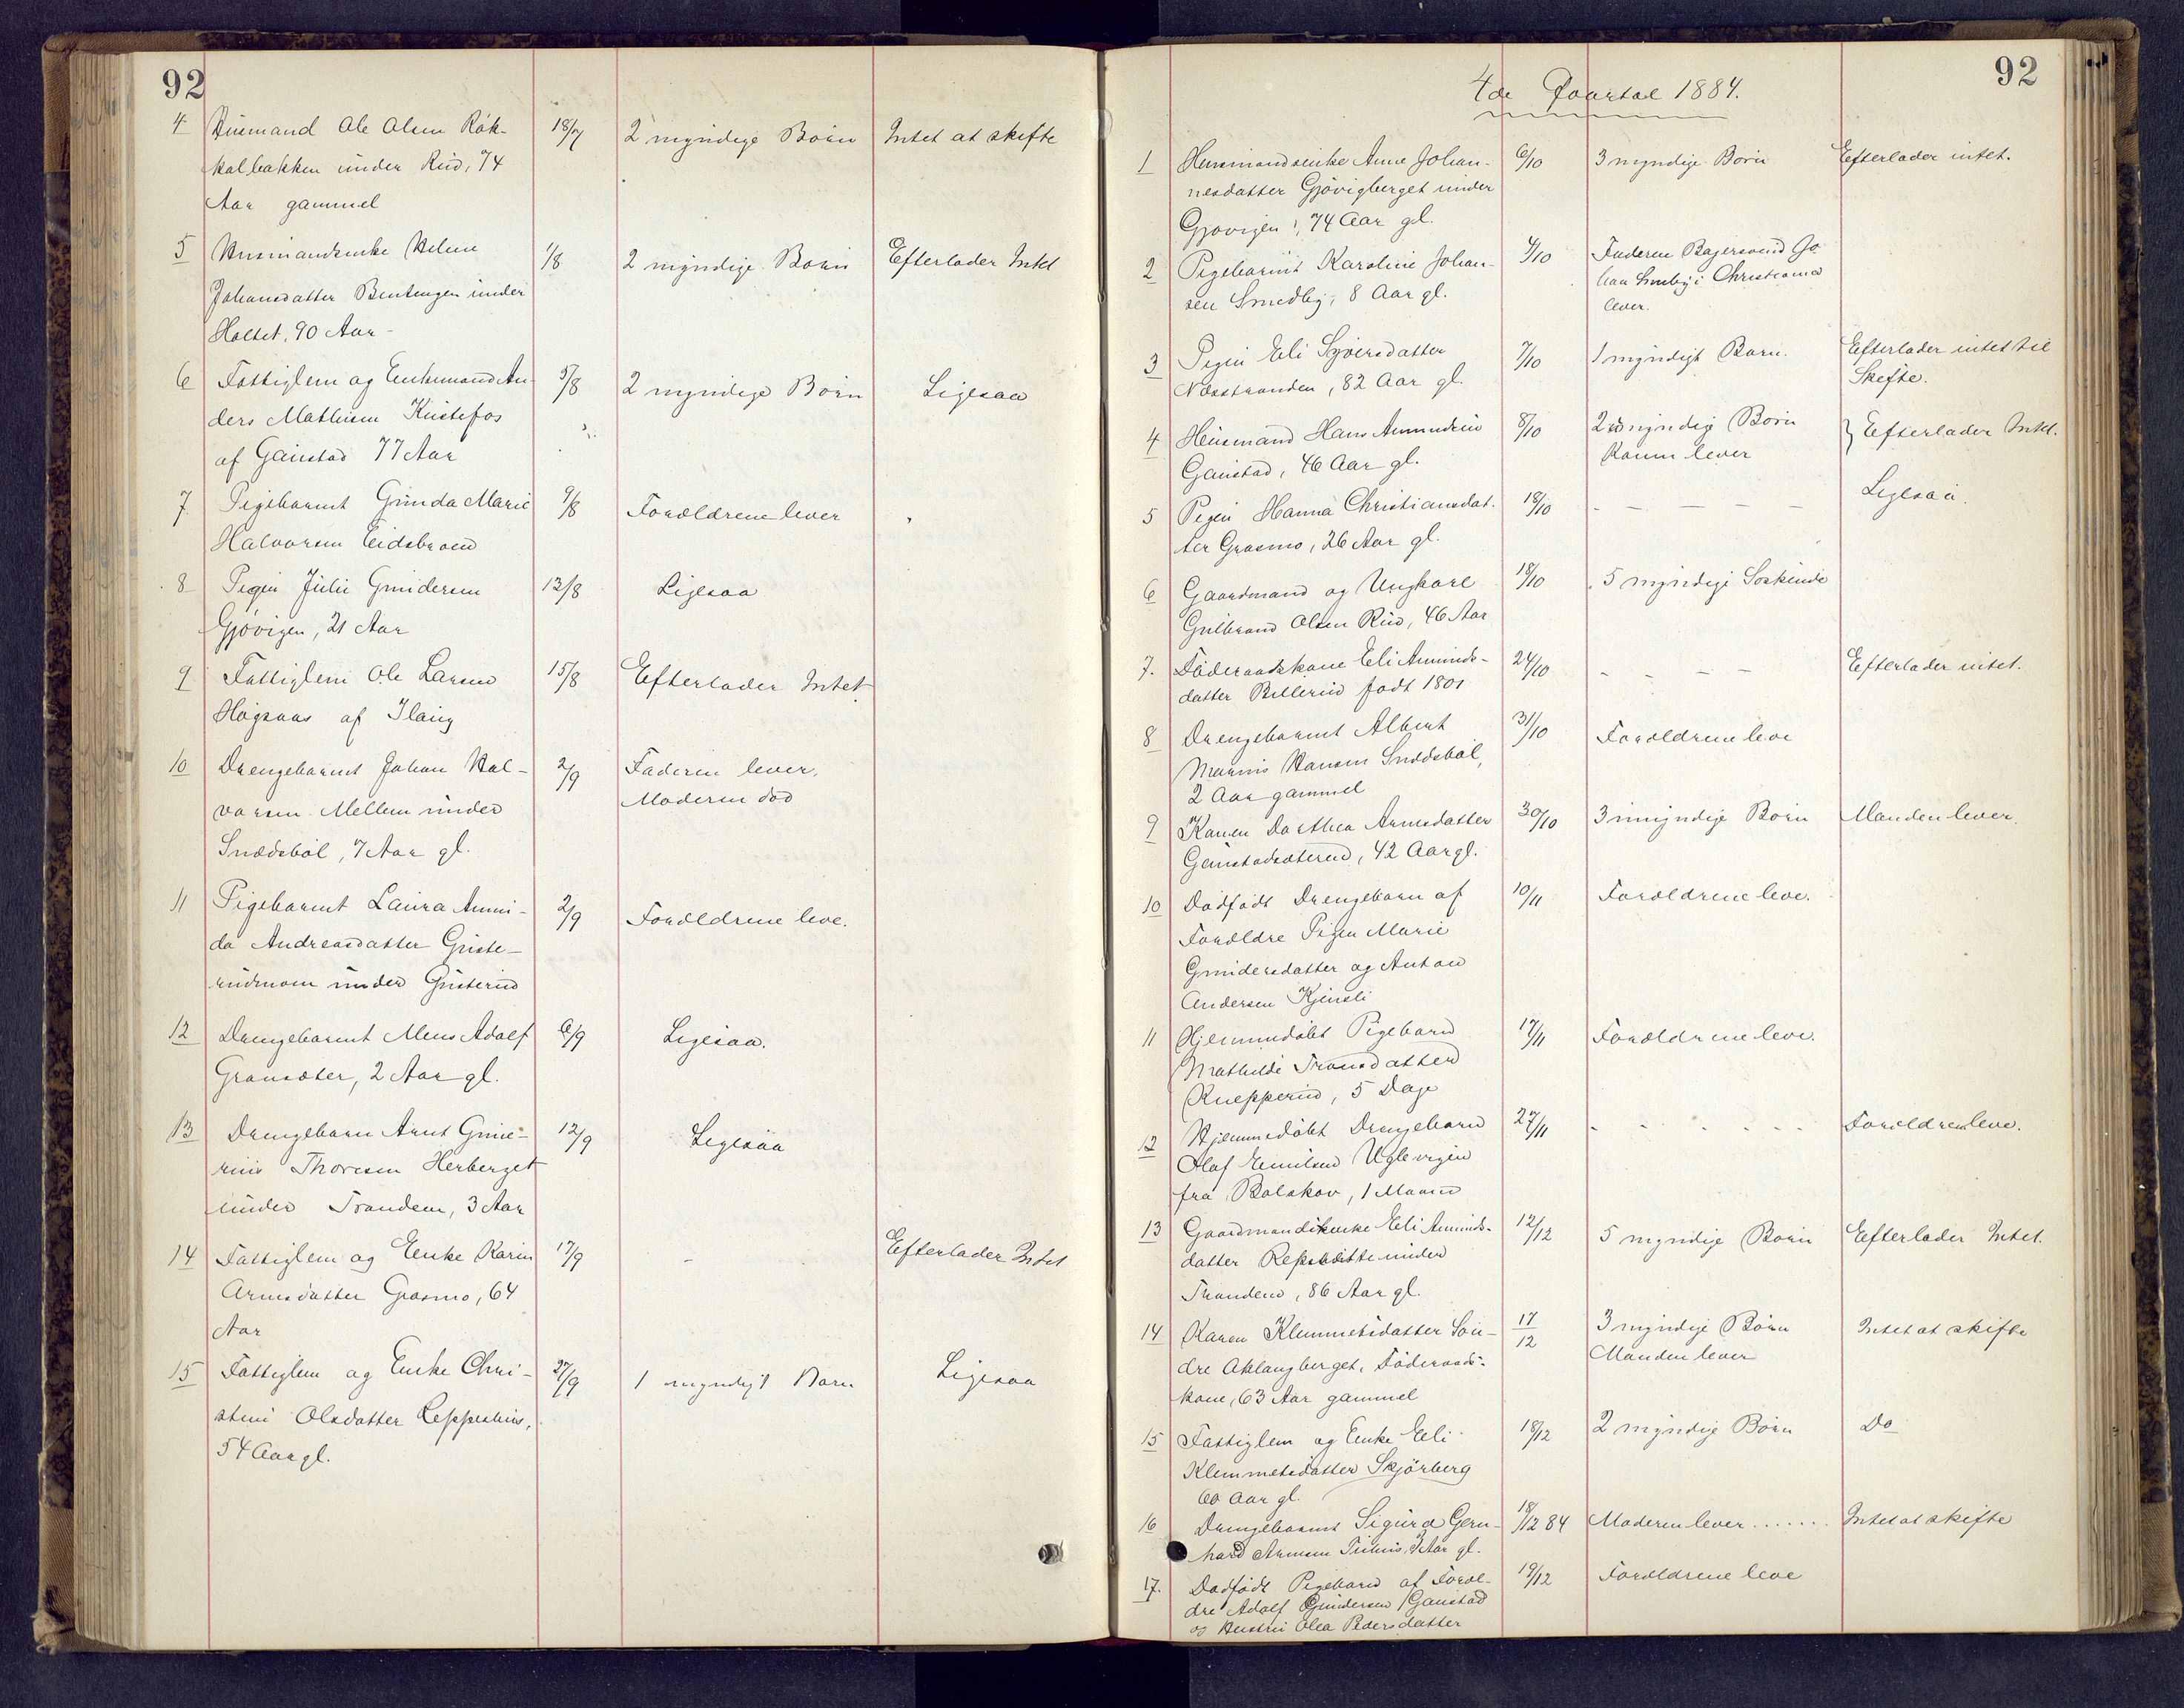 92
4 Husmand Ole Olsen Røk- 18/7 2 myndige Børn Intet at skifte
kolbakken under Rud, 74
Aar gammel
5 Husmandsenke Helene 1/8 2 myndige Børn Efterlader Intet
Johansdatter Bentengen under
Holtet, 90 Aar
6 Fattiglem og Enkemand An- 5/8 2 myndige Børn Ligesaa
ders Mathisen Kistefos
af Gaustad 77 Aar
7 Pigebarnet Gunda Marie 9/8 Forældrene lever
Halvorsen Eidsbraen
8 Pigen Julie Gundersen 13/8 Ligesaa
Gjøvigen, 21 Aar
9 Fattiglem Ole Larsen 15/8 Efterlader Intet
Høgsaas af Ilaug
10 Drengebarnet Johan Hal- 2/9 Faderen lever,
vorsen Mellem under Moderen død
Snedsbøl, 7 Aar gl.
11 Pigebarnet Laura Ammi- 2/9 Forældrene leve.
da Andreasdatter Guste-
rudmoen under Gusterud
12 Drengebarnet Mens Adolf 6/9 Ligesaa.
Gransæter, 2 Aar gl.
13 Drengebarn Arnt Gune- 12/9 Ligesaa
rius Thoresen Herberget
under Tranden, 3 Aar
14 Fattiglem og Enke Karen 17/9 - Efterlader Intet
Arnesdatter Grasmo, 64
Aar
15 Fattiglem og Enke Chri- 27/9 1 myndigt Barn Ligesaa
stine Olsdatter Leppeshus,
54 Aar gl.
92
4de Qvartal 1884.
1 Husmandsenke Anne Johan- 6/10 3 myndige Børn Efterlader intet.
nesdatter Gjøvigberget under
Gjøvigen, 74 Aar gl.
2 Pigebarnet Karoline Johan- 4/10 Faderen Bagersvend Jo-
sen Smedby, 8 Aar gl. han Smeby i Christiania
lever.
3 Pigen Eli Syversdatter 7/10 1 myndigt Barn. Efterlader intet til
Næsstranden, 82 Aar gl. Skifte.
4 Husmand Hans Amundsen 8/10 2 umyndige Børn } Efterlader Intet.
Gaustad, 46 Aar gl. Konen lever
5 Pigen Hanna Christiansdat- 18/10 - - - - - Ligesaa.
ter Grasmo, 26 Aar gl.
6 Gaardmand og Ungkarl 18/10 5 myndige Søskende
Gulbrand Olsen Rud, 46 Aar
7. Føderaadskone Eli Amunds- 24/10 - - - - Efterlader intet.
datter Billerud født 1801
8 Drengebarnet Albert 31/10 Forældrene leve
Marius Hansen Snedsbøl,
2 Aar gammel
9 Konen Dorthea Arnesdatter 30/10 3 umyndige Børn Manden lever.
Gaustadsæteren, 42 Aar gl.
10 Dødfødt Drengebarn af 10/11 Forældrene leve.
Forældre Pigen Marie
Gundersdatter og Anton
Andersen Kjensli
11 Hjemmedøbt Pigebarn 17/11 Forældrene leve.
Mathilde Transdatter
Knepperud, 5 Dage
12 Hjemmedøbt Drengebarn 27/11 - - - - - - Forældrene leve.
Olaf Emilsen Uglevigen
fra Bolskov, 1 Maaned
13 Gaardmandsenke Eli Amunds- 12/12 5 myndige Børn Efterlader Intet.
datter under
Tranden, 86 Aar gl.
14 Karen Klemmetsdatter Søn- 17/12 3 myndige Børn Intet at skifte
dre Aklangberget, Føderaads- Manden lever
kone, 63 Aar gammel
15 Fattiglem og Enke Eli 18/12 2 myndige Børn Do
Klemmetsdatter Skjørberg
60 Aar gl.
16 Drengebarnet Sigurd Gern- 18/12 84 Moderen lever ....... Intet at skifte
hard Arnesen 3 Aar gl.
17. Dødfødt Pigebarn af Foræl- 19/12 Forældrene leve
dre Adolf Gundersen Gaustad
og Hustru Olea Pedersdatter